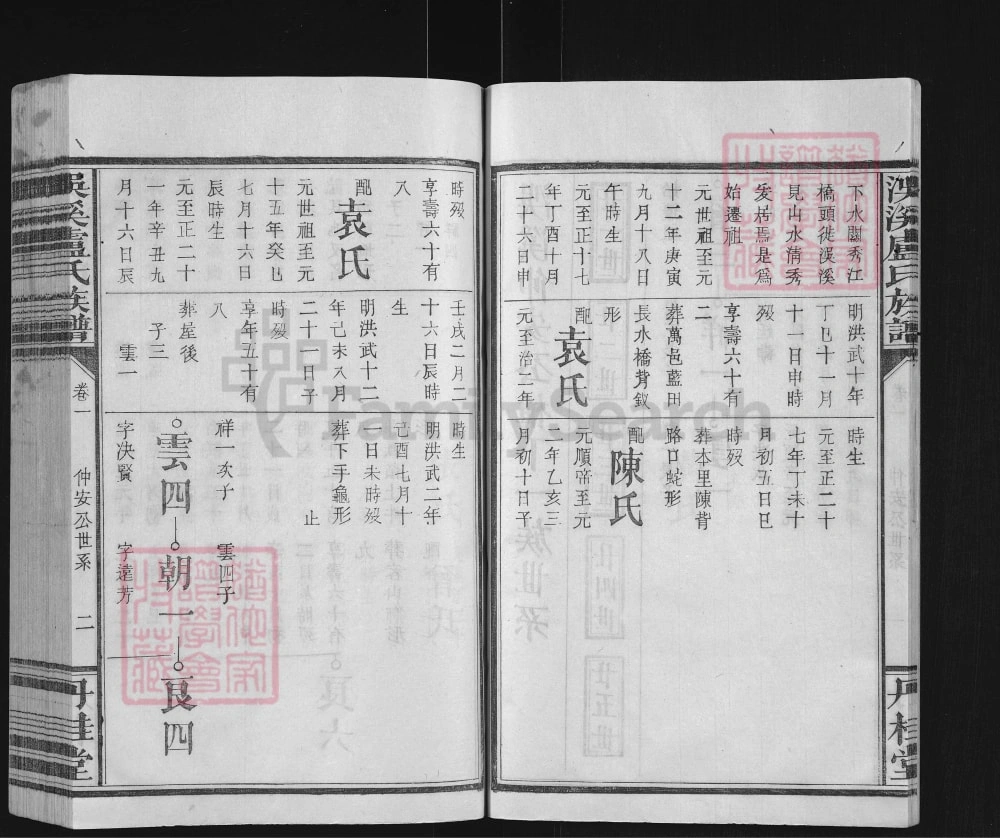 渂溪盧氏族譜
丹桂堂
下水關秀江
橋頭徙渂溪
見山水清秀
爰居焉是爲
始遷祖
元世祖至元
十二年庚寅
九月十八日
午時生
元至正十七
年丁酉十月
二十六日申
明洪武十年
丁巳十一月
十一日申時
歿
享壽六十有
二
葬萬邑藍田
長水橋背釵
形
配袁氏
元至治二年
時生
元至正二十
七年丁未十
月初五日巳
時歿
葬本里陳背
路口蛇形
配陳氏
元順帝至元
二年乙亥三
月初十日子
時歿
享壽六十有
八
配袁氏
元世祖至元
十五年癸巳
七月十六日
辰時生
元至正二十
一年辛丑九
月十六日辰
壬戌二月二
十六日辰時
生
明洪武十二
年己未八月
二十一日子
時歿
享年五十有
八
葬屋後
子三 雲一
時生
明洪武二年
己酉七月十
一日未時歿
葬下手龜形
止
祥一次子 雲四子
雲四 朝一 良四
字決賢 字遠芳
卷一
仲安公世系
二
丹桂堂
FamilySearch